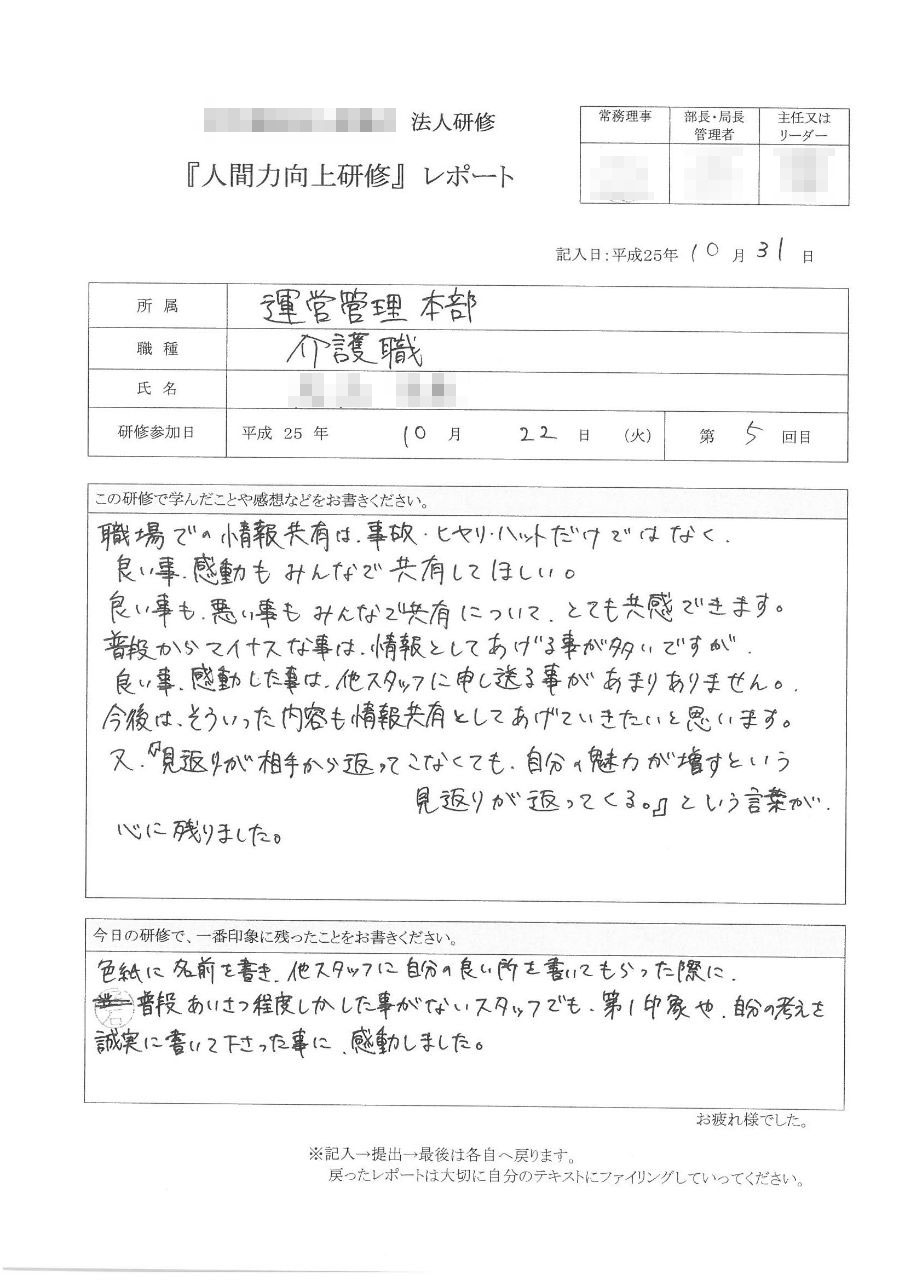 法人研修
『人間力向上研修』 レポート
常務理事
部長・局長
管理者
主任又は
リーダー
記入日:平成25年 10 月 31 日
所 属 運営管理 本部
職 種 介護職
氏 名
研修参加日 平成 25 年 10 月 22 日 (火) 第 5 回目
この研修で学んだことや感想などをお書きください。
職場での情報共有は、事故・ヒヤリ・ハットだけではなく、
良い事、感動もみんなで共有してほしい。
良い事も、悪い事もみんなで共有について、とても共感できます。
普段からマイナスな事は、情報としてあげる事が多いですが、
良い事、感動した事は、他スタッフに申し送る事があまりありません。
今後は、そういった内容も情報共有としてあげていきたいと思います。
又、『見返りが相手から返ってこなくても、自分の魅力が増すという
見返りが返ってくる。』という言葉が、
心に残りました。
今日の研修で、一番印象に残ったことをお書きください。
色紙に名前を書き、他スタッフに自分の良い所を書いてもらった際に、
普段あいさつ程度しかした事がないスタッフでも、第1印象や、自分の考えを
誠実に書いて下さった事に、感動しました。
お疲れ様でした。
※記入→提出→最後は各自へ戻ります。
戻ったレポートは大切に自分のテキストにファイリングしていってください。